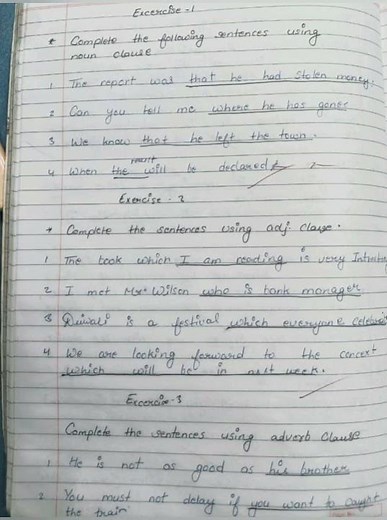 Excercise-1
* Complete the following sentences using
noun clause
1 The report was that he had stolen money.
2 Can you tell me where he has gone?
3 We know that he left the town.
result
4 When the will be declared
Exercise-2
* Complete the sentences using adj. clause.
1 The book which I am reading is very
2 I met Mr. Wilson who is bank manager.
3 Diwali is a festival which everyone
4 We are looking forward to the concert
which will be in next week.
Excercise-3
Complete the sentences using adverb clause
1 He is not as good as his brother
2 You must not delay if you want to caught
the train